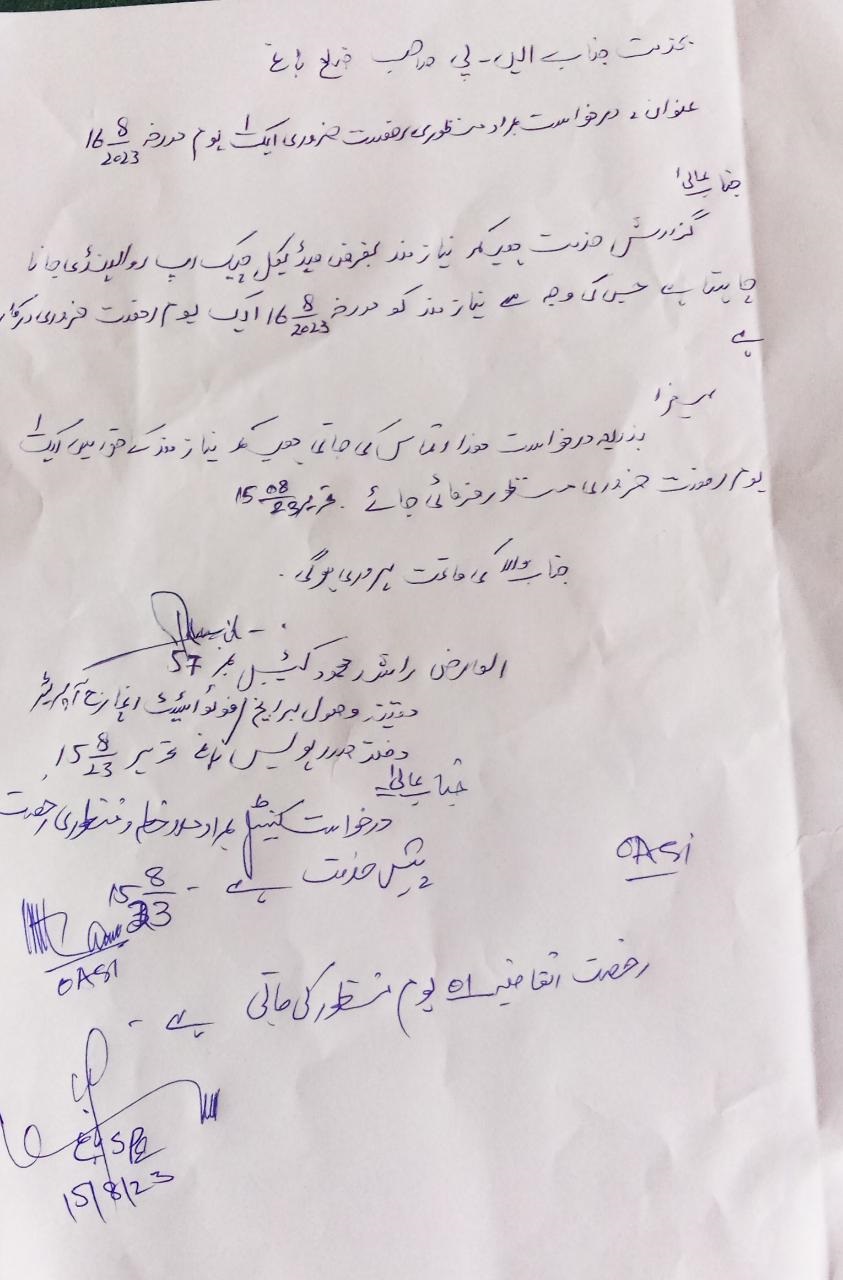 بخدمت جناب ایس۔پی صاحب ضلع باغ
عنوان: درخواست بمراد منظوری رخصت ضروری ایک 1 یوم مورخہ 16 8/2023
جناب عالی!
گزارش خدمت ہیکہ نیازمند بغرض میڈیکل چیک اپ راولپنڈی جانا
چاہتا ہے جس کی وجہ سے نیازمند کو مورخہ 16 8/2023 ایک یوم رخصت ضروری درکار
ہے
لہذا
بذریعہ درخواست ہذا التماس کی جاتی ہیکہ نیازمند کے حق میں ایک 1
یوم رخصت ضروری منظور فرمائی جائے۔ تحریر 15 08/23
جناب والا کی عین پروری ہوگی۔
العارض راشد محمود کنسٹیبل نمبر 57
متعینہ وصول برانچ / فوٹوسٹیٹ انچارج آپریٹر
دفتر صدر پولیس باغ تحریر 15 8/23
جناب عالی!
درخواست کنسٹیبل بمراد ملاحظہ و منظوری رخصت
پیش خدمت ہے۔ 15 8/23
OASI
OASI
رخصت اتفاقیہ 01 یوم منظور کی جاتی ہے۔
SP باغ
15/8/23